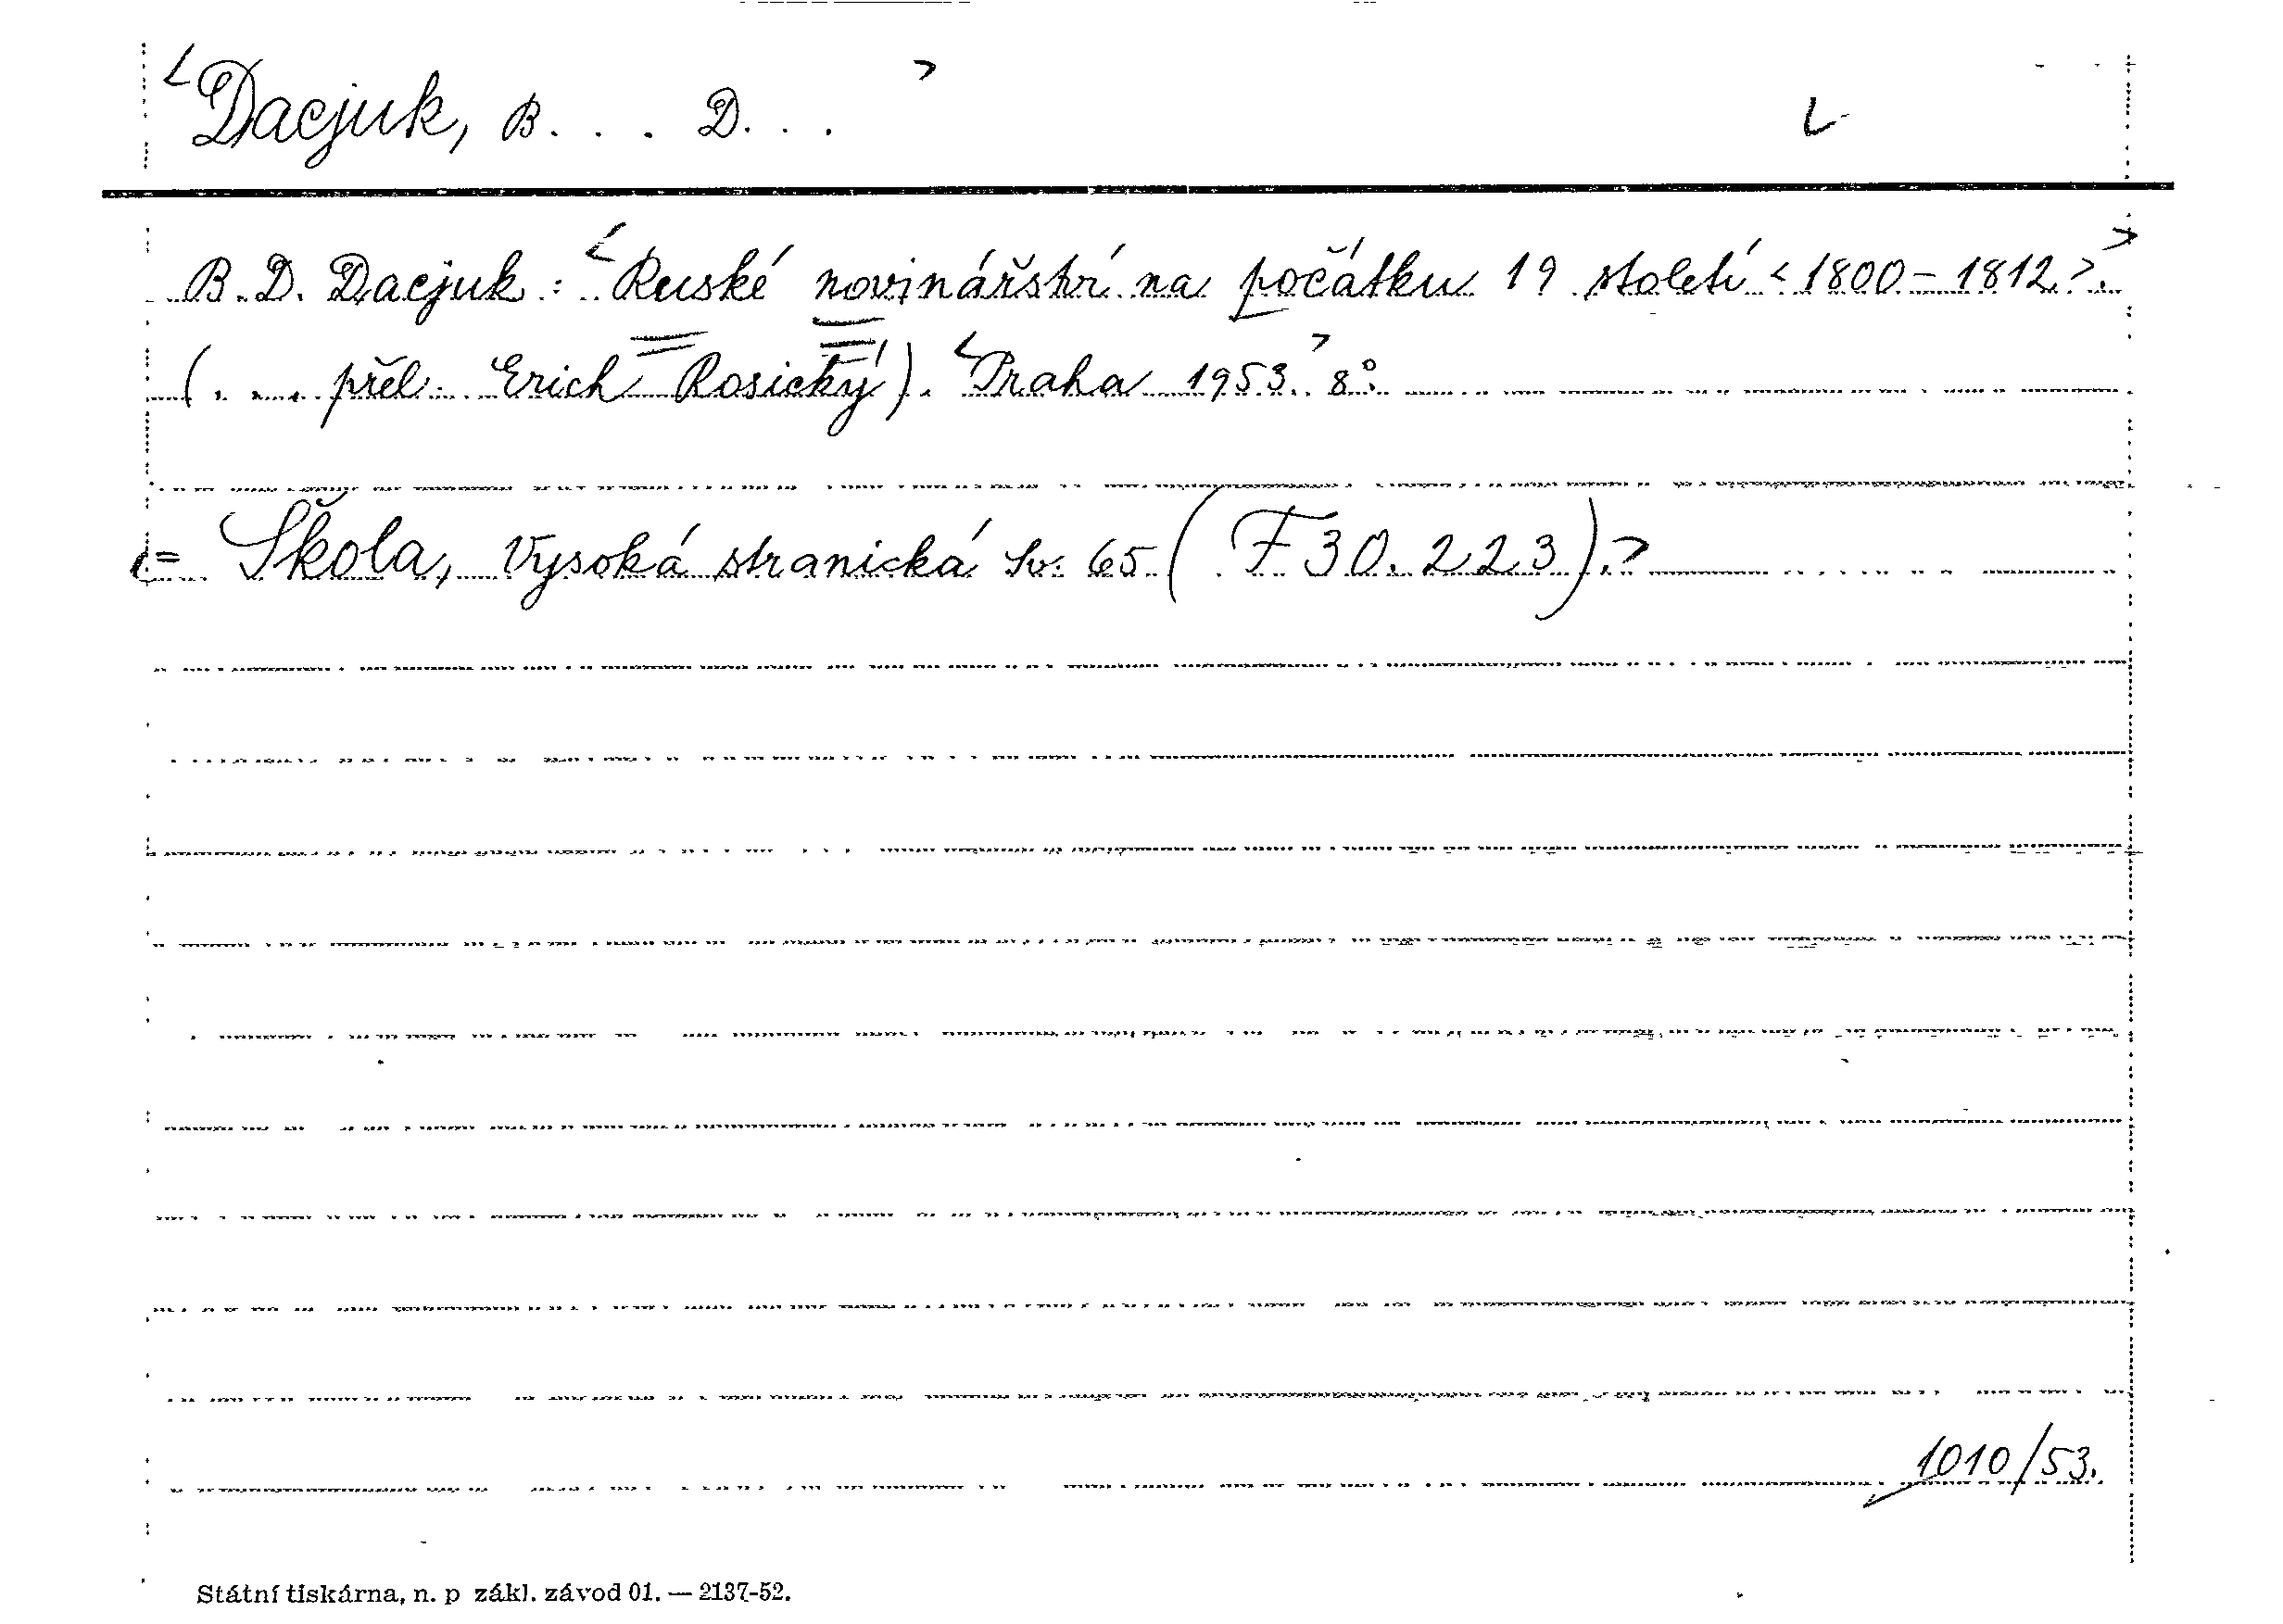 <Dacjuk, B. . . D. . . >
B. D. Dacjuk: <Ruské novinářství na počátku 19 století <1800-1812>.>
(... přel. Erich Rosický). <Praha 1953.> 8°.
<= Škola, Vysoká stranická Sv. 65 (F 30.223).>
1010/53.
Státní tiskárna, n. p zákl. závod 01. — 2137-52.